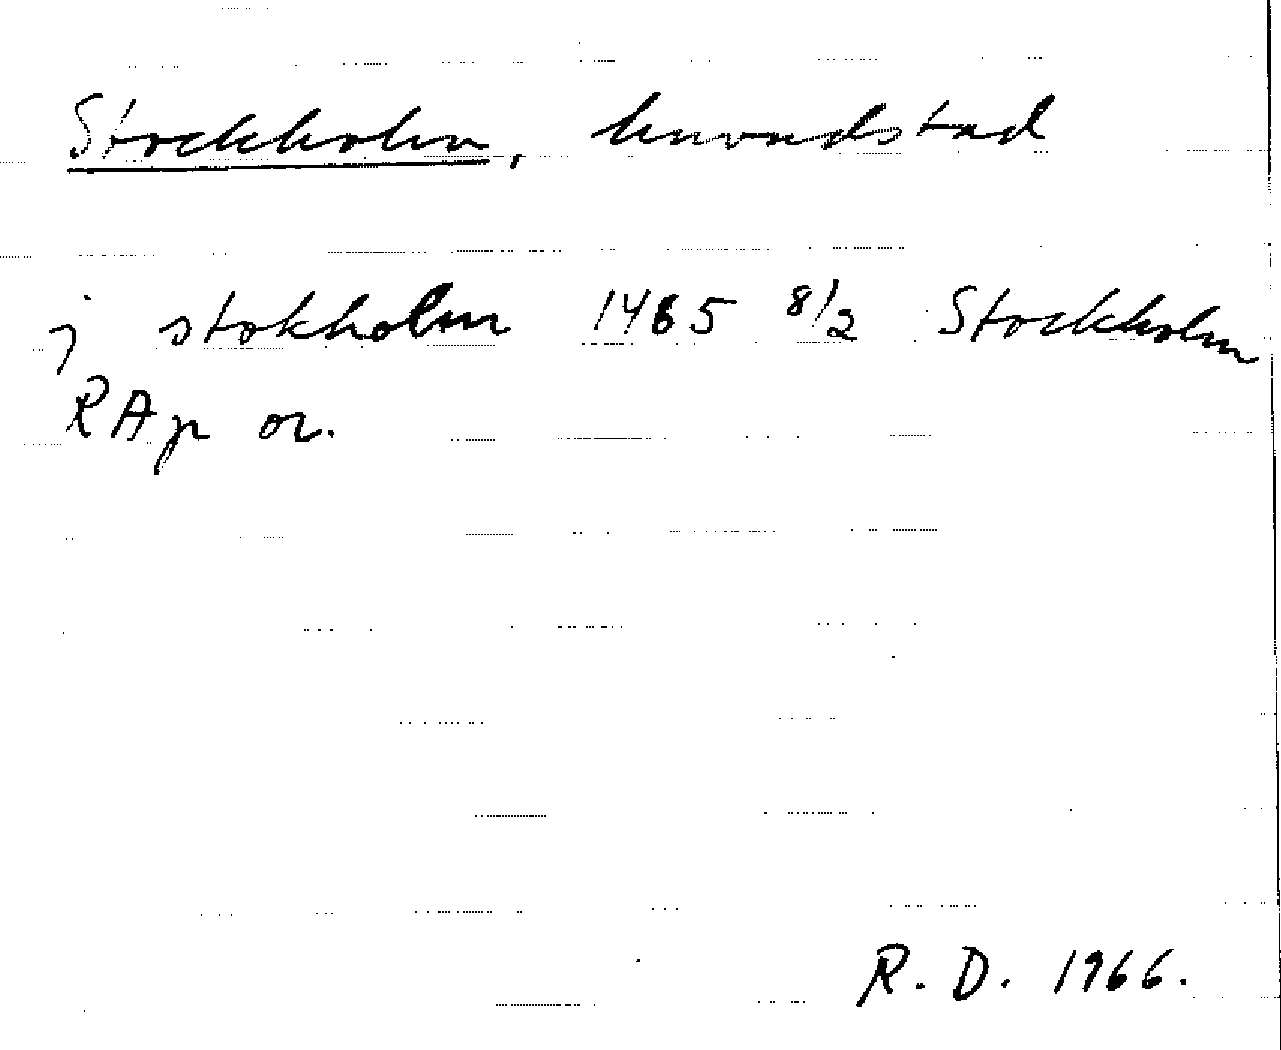 Stockholm, huvudstad
j stokholm 1465 8/2 Stockholm
RAp or.
R. D. 1966.